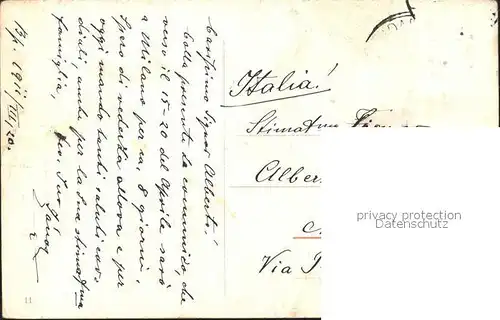 Bp. 1911/III 20.
Carissimo Signor Alberti!
Colla presente La comunico, che
verso il 15-20 del Aprile sarò
a Milano per ca. 8 giorni.
Spero di vederla allora e per
oggi mando tanti saluti cor-
diali, anche per la Sua stimatma
famiglia,
Suo
János
Italia!
Stimatmo Signor
Alber
Via
privacy protection
Datenschutz
11